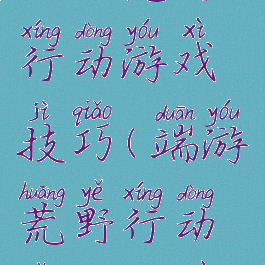 xíng dòng yóu xì
行动游戏
jì qiǎo duān yóu
技巧(端游
huāng yě xíng dòng
荒野行动